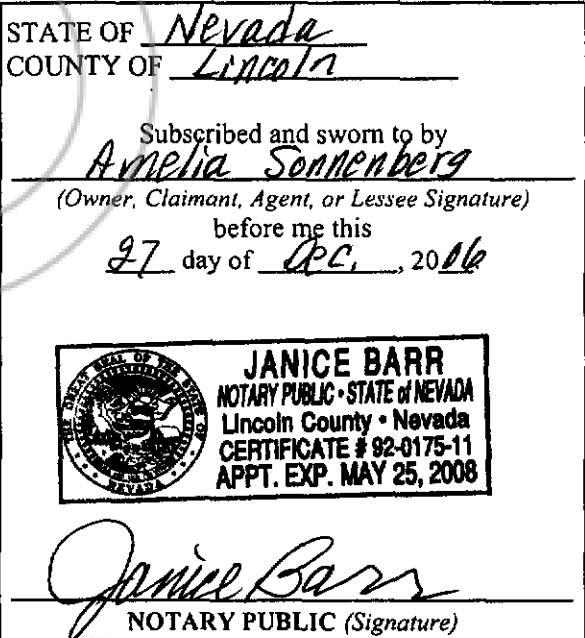 STATE OF Nevada
COUNTY OF Lincoln
Subscribed and sworn to by
Amelia Sonnenberg
(Owner, Claimant, Agent, or Lessee Signature)
before me this
27 day of Dec., 2006
THE GREAT SEAL OF THE STATE OF NEVADA
JANICE BARR
NOTARY PUBLIC • STATE of NEVADA
Lincoln County • Nevada
CERTIFICATE # 92-0175-11
APPT. EXP. MAY 25, 2008
Janice Barr
NOTARY PUBLIC (Signature)